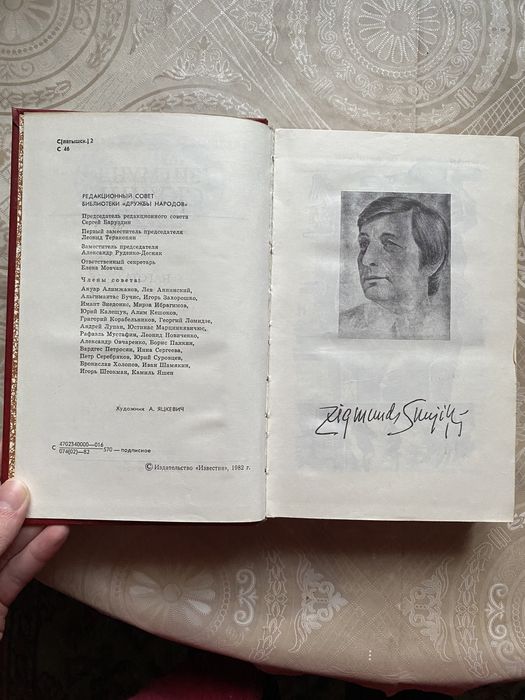 С(латышск.) 2
С 46
РЕДАКЦИОННЫЙ СОВЕТ
БИБЛИОТЕКИ «ДРУЖБЫ НАРОДОВ»
Председатель редакционного совета
Сергей Баруздин
Первый заместитель председателя
Леонид Теракопян
Заместитель председателя
Александр Руденко-Десняк
Ответственный секретарь
Елена Мовчан
Члены совета:
Ануар Алимжанов, Лев Аннинский,
Альгимантас Бучис, Игорь Захорошко,
Имант Зиедонис, Мирза Ибрагимов,
Юрий Калещук, Алим Кешоков,
Григорий Корабельников, Георгий Ломидзе,
Андрей Лупан, Юстинас Марцинкявичюс,
Рафаэль Мустафин, Леонид Новиченко,
Александр Овчаренко, Борис Панкин,
Вардгес Петросян, Инна Сергеева,
Петр Серебряков, Юрий Суровцев,
Бронислав Холопов, Иван Шамякин,
Игорь Штокман, Камиль Яшен
Художник А. ЯЦКЕВИЧ
С 4702340000—016
074(02)—82 570 — подписное
© Издательство «Известия», 1982 г.
Zigmunds Skujiņš